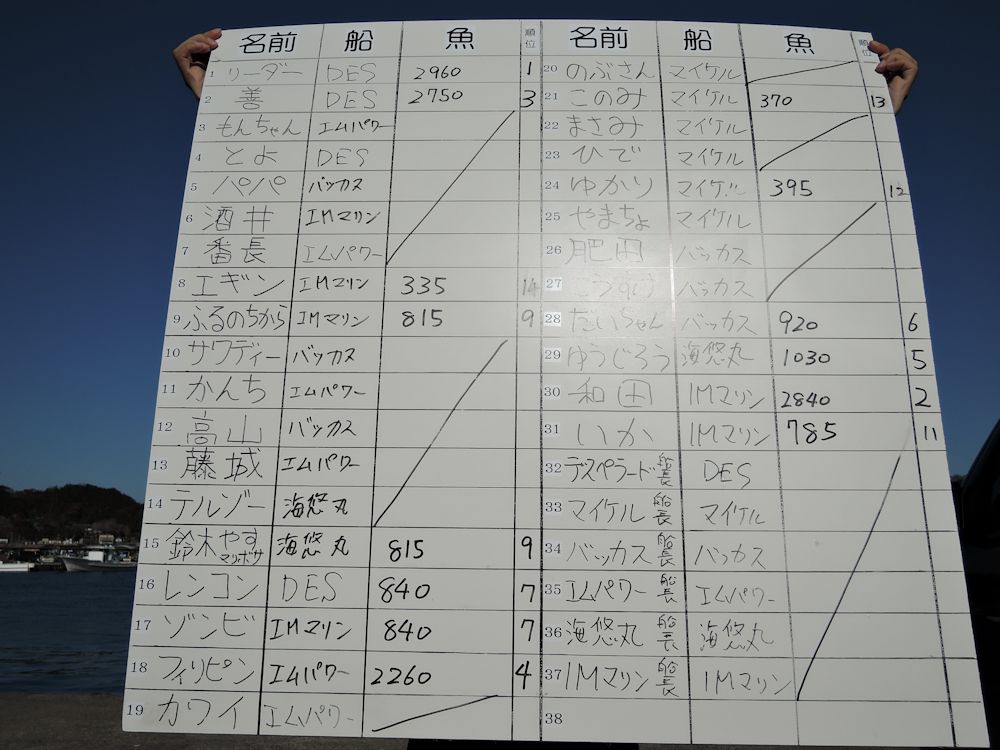 名前 船 魚 順位
1 リーダー DES 2960 1
2 善 DES 2750 3
3 もんちゃん エムパワー
4 とよ DES
5 パパ バッカス
6 酒井 IMマリン
7 番長 エムパワー
8 エギン IMマリン 335 14
9 ふるのちから IMマリン 815 9
10 サワディー バッカス
11 かんち エムパワー
12 高山 バッカス
13 藤城 エムパワー
14 テルゾー 海悠丸
15 鈴木やすマツボサ 海悠丸 815 9
16 レンコン DES 840 7
17 ゾンビ IMマリン 840 7
18 フィリピン エムパワー 2260 4
19 カワイ エムパワー
名前 船 魚 順位
20 のぶさん マイケル
21 このみ マイケル 370 13
22 まさみ マイケル
23 ひで マイケル
24 ゆかり マイケル 395 12
25 やまちょ マイケル
26 肥田 バッカス
27 バッカス
28 だいちゃん バッカス 920 6
29 ゆうじろう 海悠丸 1030 5
30 和田 IMマリン 2840 2
31 いか IMマリン 785 11
32 デスペラード船長 DES
33 マイケル船長 マイケル
34 バッカス船長 バッカス
35 エムパワー船長 エムパワー
36 海悠丸船長 海悠丸
37 IMマリン船長 IMマリン
38